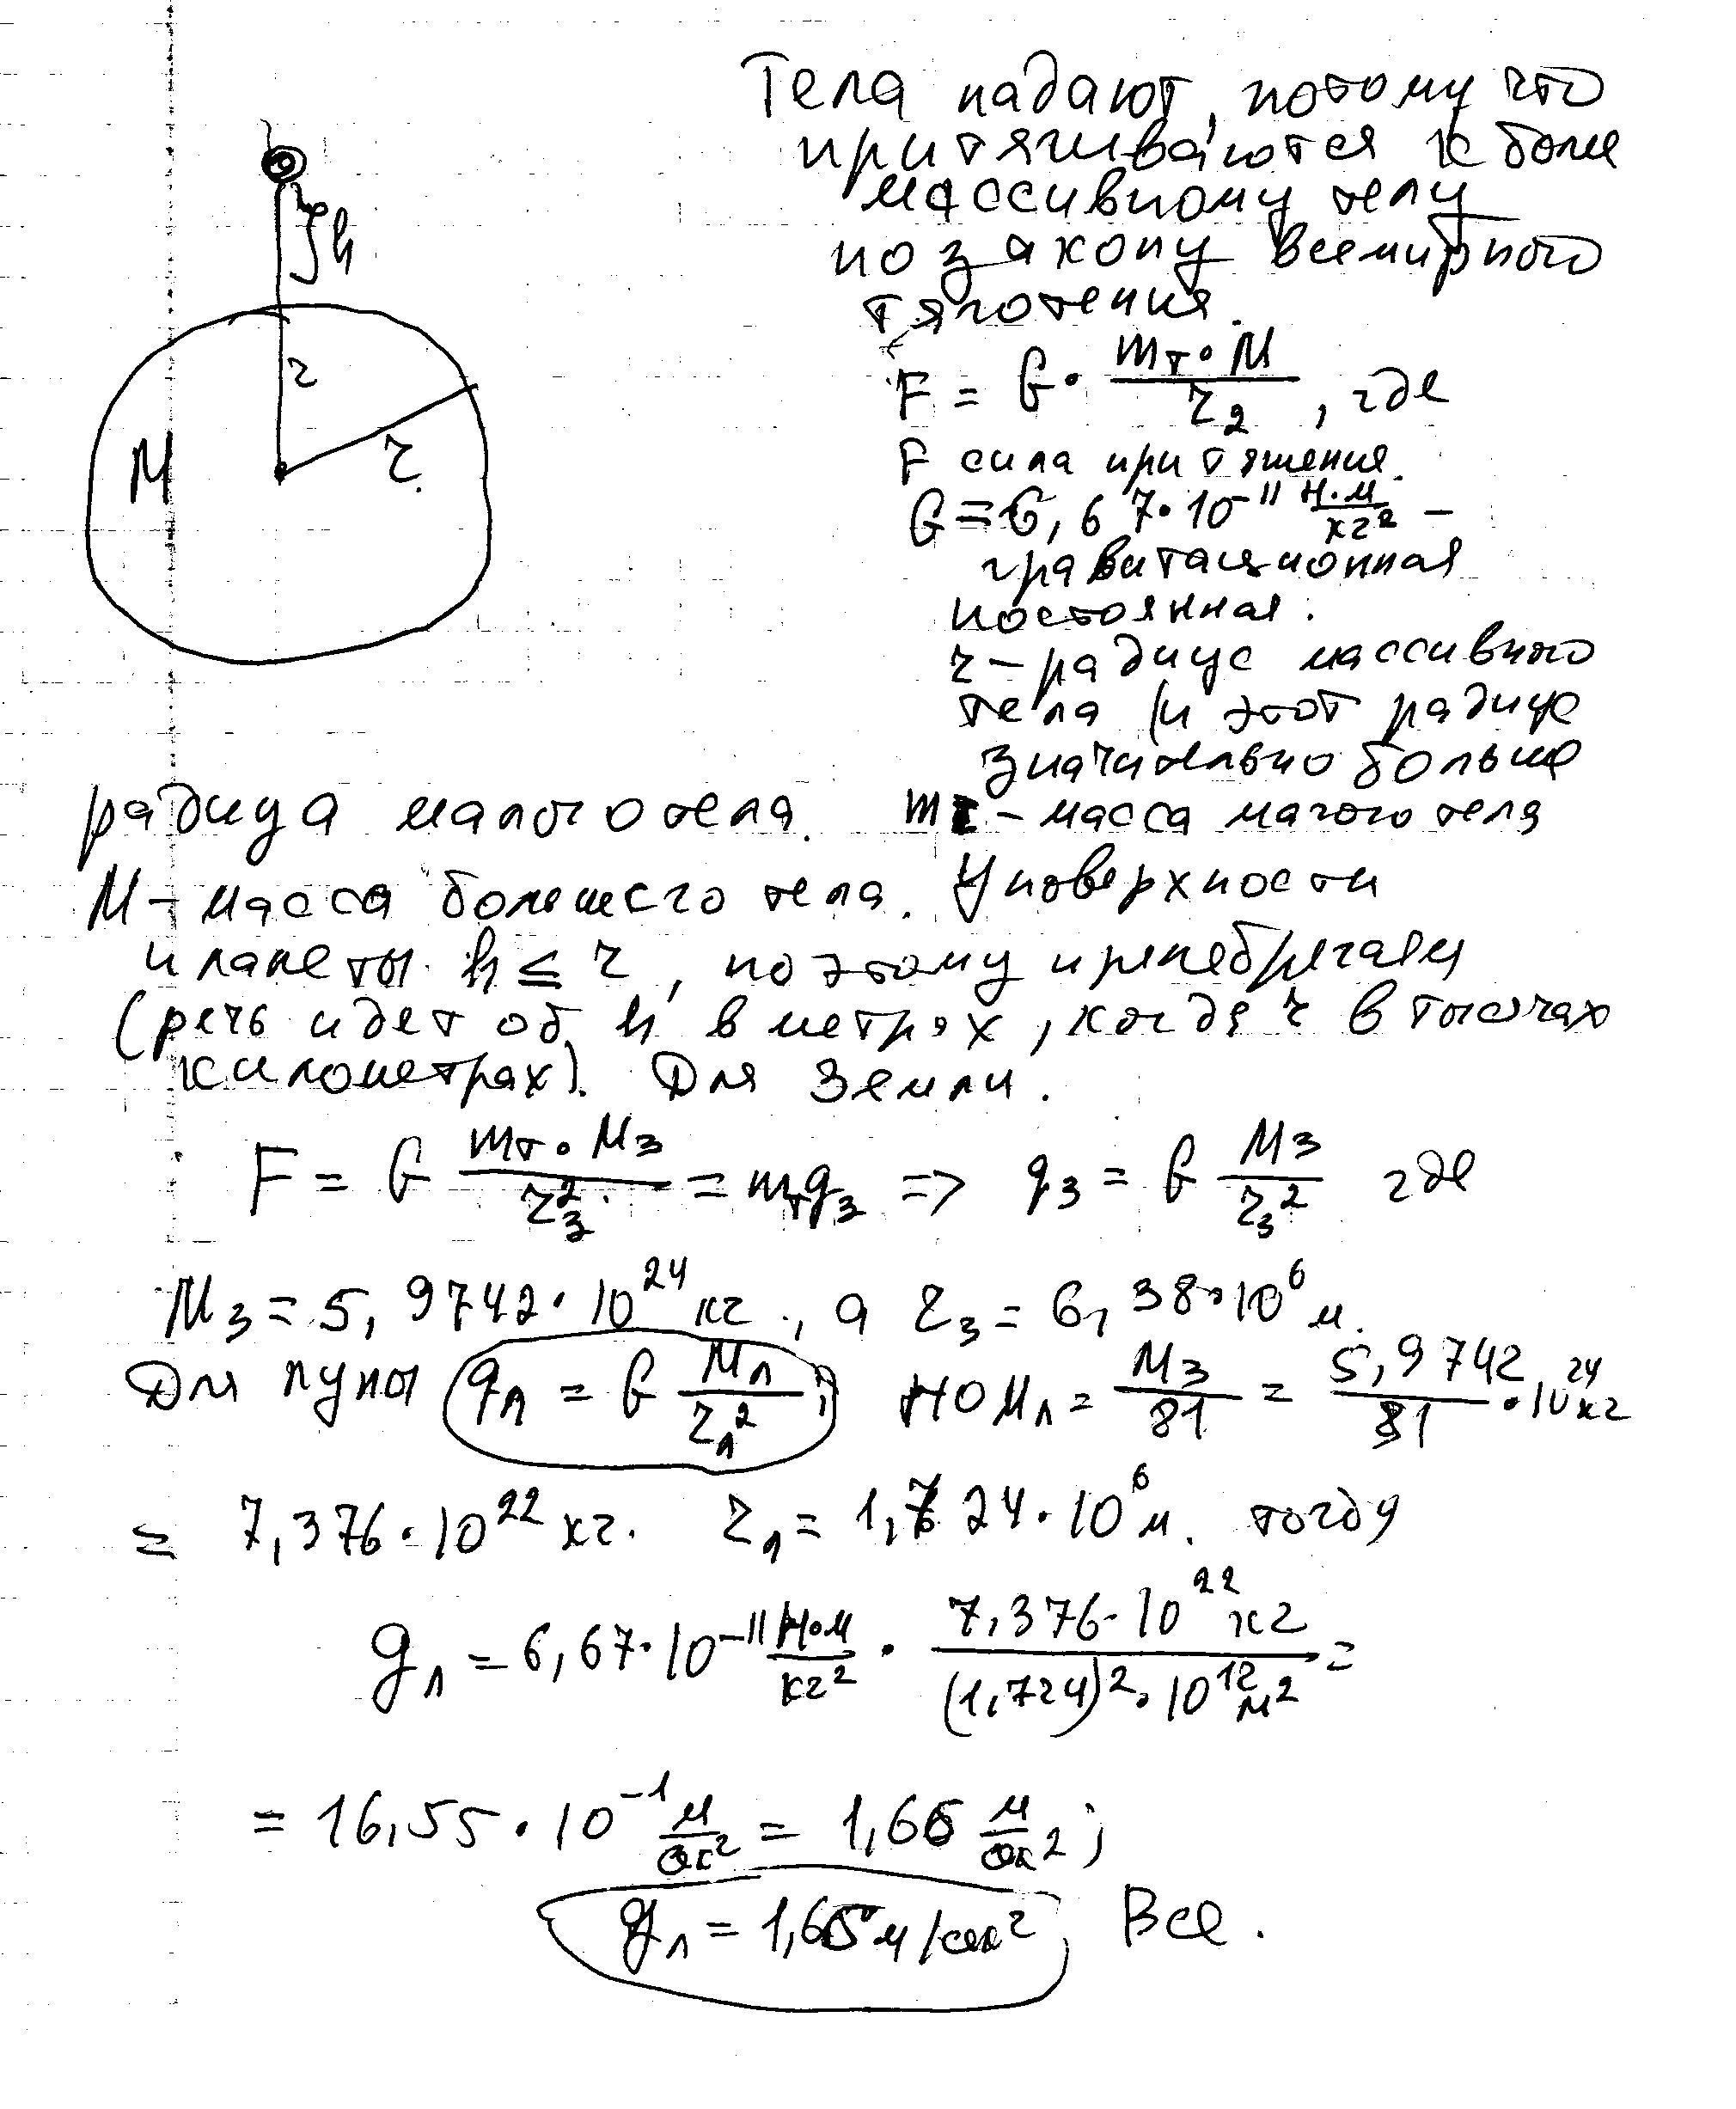 Тела падают, потому что
притягиваются к более
массивному телу
по закону всемирного
тяготения.
h
r
r
M
F = G · mт · M / r2, где
F сила притяжения.
G = 6,67 · 10^-11 Н·м/кг² –
гравитационная
постоянная.
r – радиус массивного
тела (и этот радиус
значительно больше
радиуса малого тела. mт – масса малого тела
M – масса большего тела. У поверхности
планеты h ≤ r, поэтому пренебрегаем
(речь идет об h в метрах, когда r в тысячах
километрах). Для Земли.
F = G mт · Mз / rз² = mтgз => gз = G Mз / rз² где
Mз = 5,9742 · 10^24 кг., а rз = 6,38 · 10^6 м.
Для луны gл = G Mл / rл²; но Mл = Mз / 81 = 5,9742 / 81 · 10^24 кг
= 7,376 · 10^22 кг. rл = 1,724 · 10^6 м. тогда
gл = 6,67 · 10^-11 Н·м/кг² · 7,376 · 10^22 кг / (1,724)² · 10^12 м² =
= 16,55 · 10^-1 м/сек² = 1,66 м/сек²;
gл = 1,66 м/сек² Все.